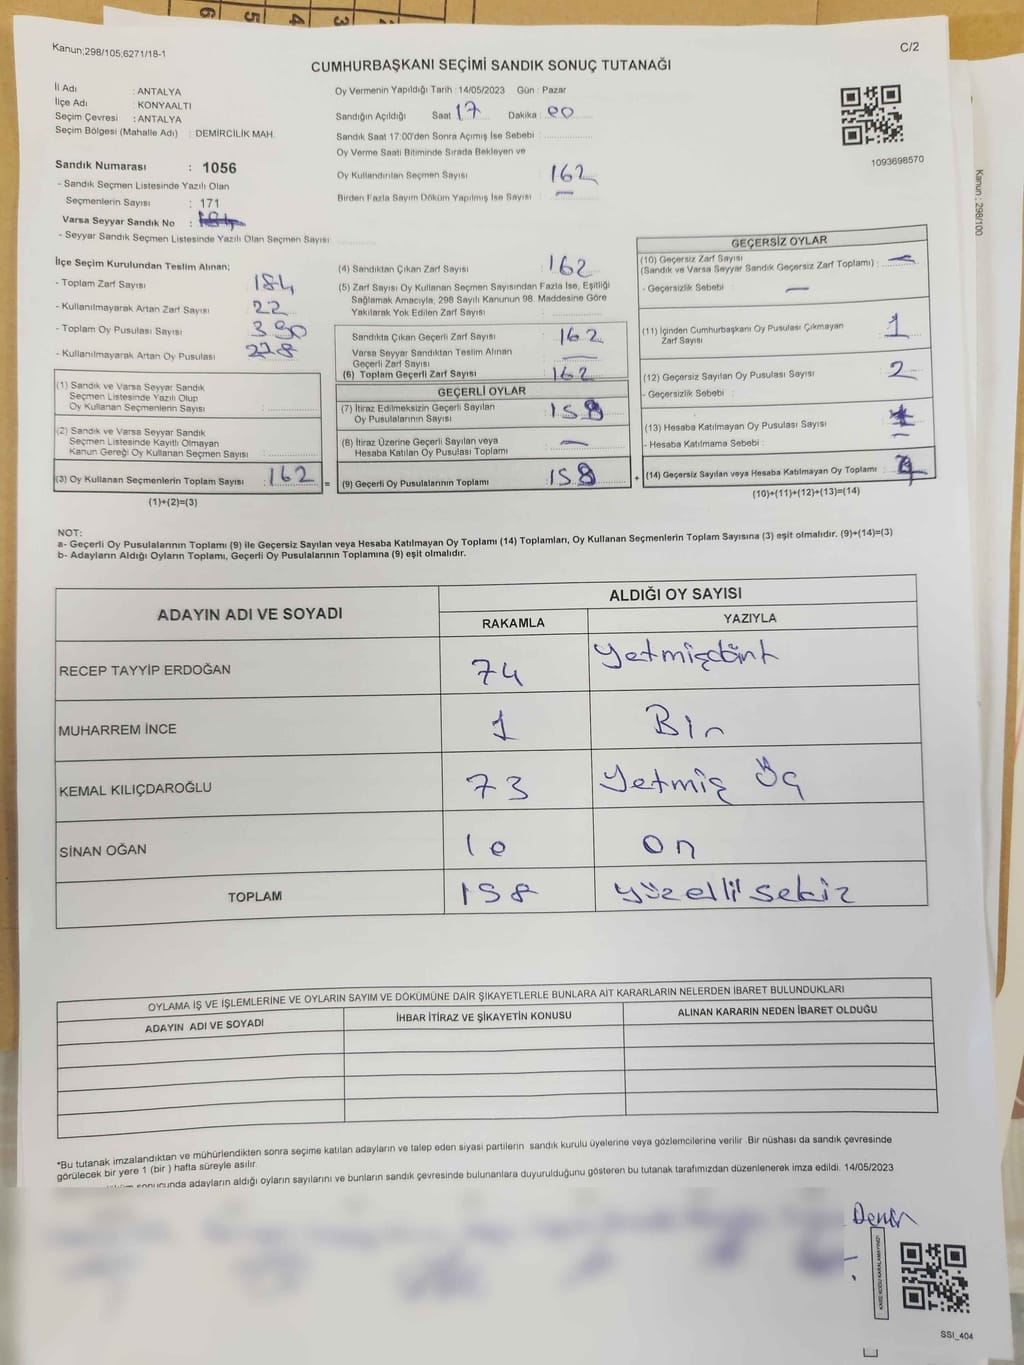 6 5 4 3
Kanun;298/105,6271/18-1
C/2
CUMHURBAŞKANI SEÇİMİ SANDIK SONUÇ TUTANAĞI
İl Adı : ANTALYA
İlçe Adı : KONYAALTI
Seçim Çevresi : ANTALYA
Seçim Bölgesi (Mahalle Adı) : DEMİRCİLİK MAH.
Sandık Numarası : 1056
- Sandık Seçmen Listesinde Yazılı Olan
Seçmenlerin Sayısı : 171
Varsa Seyyar Sandık No : 184
- Seyyar Sandık Seçmen Listesinde Yazılı Olan Seçmen Sayısı:
Oy Vermenin Yapıldığı Tarih : 14/05/2023 Gün : Pazar
Sandığın Açıldığı Saat 17 Dakika : 00
Sandık Saat 17:00'den Sonra Açımış İse Sebebi :
Oy Verme Saati Bitiminde Sırada Bekleyen ve
Oy Kullandırılan Seçmen Sayısı 162
Birden Fazla Sayım Döküm Yapılmış İse Sayısı : —
1093698570
Kanun : 298/100
İlçe Seçim Kurulundan Teslim Alınan;
- Toplam Zarf Sayısı 184
- Kullanılmayarak Artan Zarf Sayısı 22
- Toplam Oy Pusulası Sayısı 390
- Kullanılmayarak Artan Oy Pusulası 228
(1) Sandık ve Varsa Seyyar Sandık
Seçmen Listesinde Yazılı Olup
Oy Kullanan Seçmenlerin Sayısı :
(2) Sandık ve Varsa Seyyar Sandık
Seçmen Listesinde Kayıtlı Olmayan
Kanun Gereği Oy Kullanan Seçmen Sayısı :
(3) Oy Kullanan Seçmenlerin Toplam Sayısı : 162 =
(1)+(2)=(3)
(4) Sandıktan Çıkan Zarf Sayısı : 162
(5) Zarf Sayısı Oy Kullanan Seçmen Sayısından Fazla İse, Eşitliği
Sağlamak Amacıyla, 298 Sayılı Kanunun 98. Maddesine Göre
Yakılarak Yok Edilen Zarf Sayısı :
Sandıkta Çıkan Geçerli Zarf Sayısı : 162
Varsa Seyyar Sandıktan Teslim Alınan
Geçerli Zarf Sayısı : —
(6) Toplam Geçerli Zarf Sayısı : 162
GEÇERLİ OYLAR
(7) İtiraz Edilmeksizin Geçerli Sayılan
Oy Pusulalarının Sayısı : 158
(8) İtiraz Üzerine Geçerli Sayılan veya
Hesaba Katılan Oy Pusulası Toplamı : —
(9) Geçerli Oy Pusulalarının Toplamı : 158 +
GEÇERSİZ OYLAR
(10) Geçersiz Zarf Sayısı
(Sandık ve Varsa Seyyar Sandık Geçersiz Zarf Toplamı) : —
- Geçersizlik Sebebi : —
(11) İçinden Cumhurbaşkanı Oy Pusulası Çıkmayan
Zarf Sayısı : 1
(12) Geçersiz Sayılan Oy Pusulası Sayısı : 2
- Geçersizlik Sebebi :
(13) Hesaba Katılmayan Oy Pusulası Sayısı :
- Hesaba Katılmama Sebebi : —
(14) Geçersiz Sayılan veya Hesaba Katılmayan Oy Toplamı :
(10)+(11)+(12)+(13)=(14)
NOT:
a- Geçerli Oy Pusulalarının Toplamı (9) ile Geçersiz Sayılan veya Hesaba Katılmayan Oy Toplamı (14) Toplamları, Oy Kullanan Seçmenlerin Toplam Sayısına (3) eşit olmalıdır. (9)+(14)=(3)
b- Adayların Aldığı Oyların Toplamı, Geçerli Oy Pusulalarının Toplamına (9) eşit olmalıdır.
ADAYIN ADI VE SOYADI ALDIĞI OY SAYISI
RAKAMLA YAZIYLA
RECEP TAYYİP ERDOĞAN 74 yetmişdört
MUHARREM İNCE 1 Bir
KEMAL KILIÇDAROĞLU 73 yetmiş üç
SİNAN OĞAN 10 on
TOPLAM 158 yüzelli sekiz
OYLAMA İŞ VE İŞLEMLERİNE VE OYLARIN SAYIM VE DÖKÜMÜNE DAİR ŞİKAYETLERLE BUNLARA AİT KARARLARIN NELERDEN İBARET BULUNDUKLARI
ADAYIN ADI VE SOYADI İHBAR İTİRAZ VE ŞİKAYETİN KONUSU ALINAN KARARIN NEDEN İBARET OLDUĞU
*Bu tutanak imzalandıktan ve mühürlendikten sonra seçime katılan adayların ve talep eden siyasi partilerin sandık kurulu üyelerine veya gözlemcilerine verilir .Bir nüshası da sandık çevresinde
görülecek bir yere 1 (bir ) hafta süreyle asılır.
sonucunda adayların aldığı oyların sayılarını ve bunların sandık çevresinde bulunanlara duyurulduğunu gösteren bu tutanak tarafımızdan düzenlenerek imza edildi. 14/05/2023
KARE KODU KARALAMAYINIZ!
SSI_404